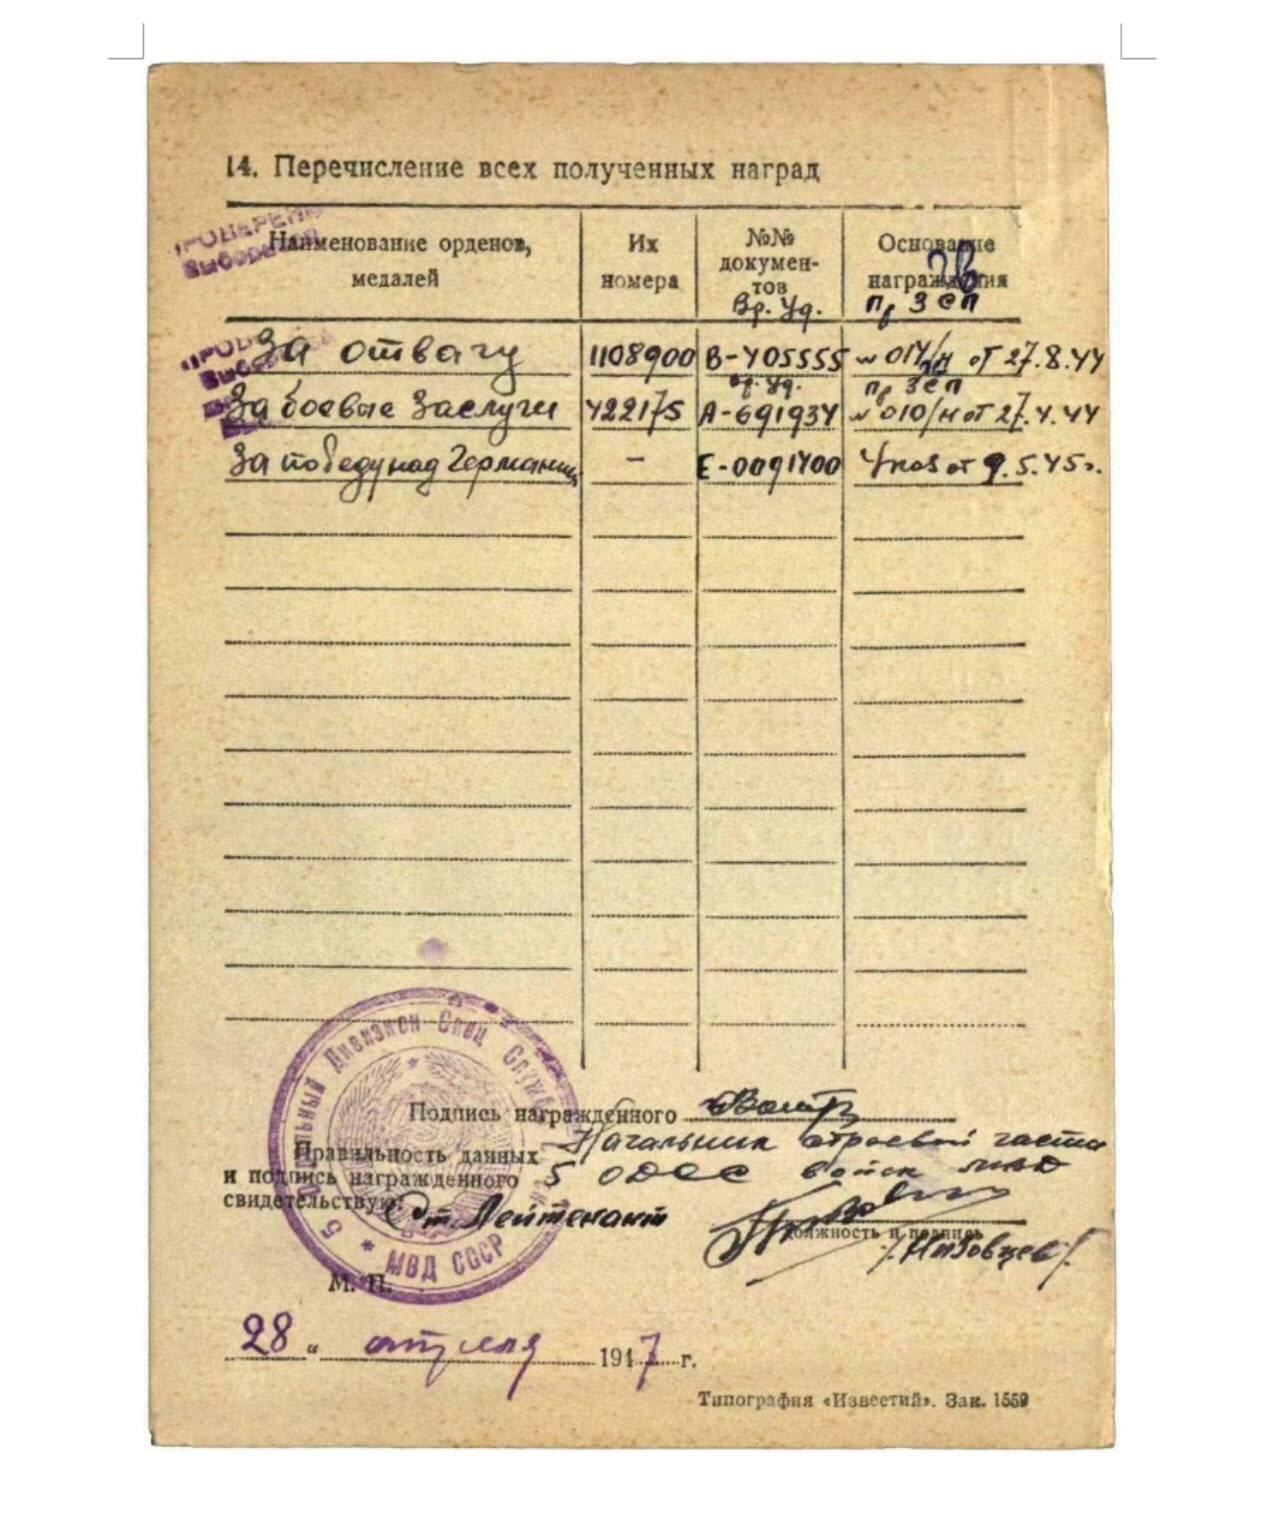 14. Перечисление всех полученных наград
Наименование орденов, медалей
Их номера
№№ документов
Основание награждения
Вр. Уд. Пр ЗСП
За отвагу 1108900 В-405555 № 017/н от 27.8.44
Вр. Уд. Пр ЗСП
За боевые заслуги 422175 А-691934 № 010/н от 27.4.44
За победу над Германией - Е-0091400 Указ от 9.5.45г.
Дивизион Спец Служб
МВД СССР
Подпись награжденного
Правильность данных и подпись награжденного свидетельствую:
Начальник строевой части
5 ОДСС войск МВД
Ст. Лейтенант
Должность и подпись
/Низовцев/
М. П.
28 " апреля 1947 г.
Типография «Известий». Зак. 1559